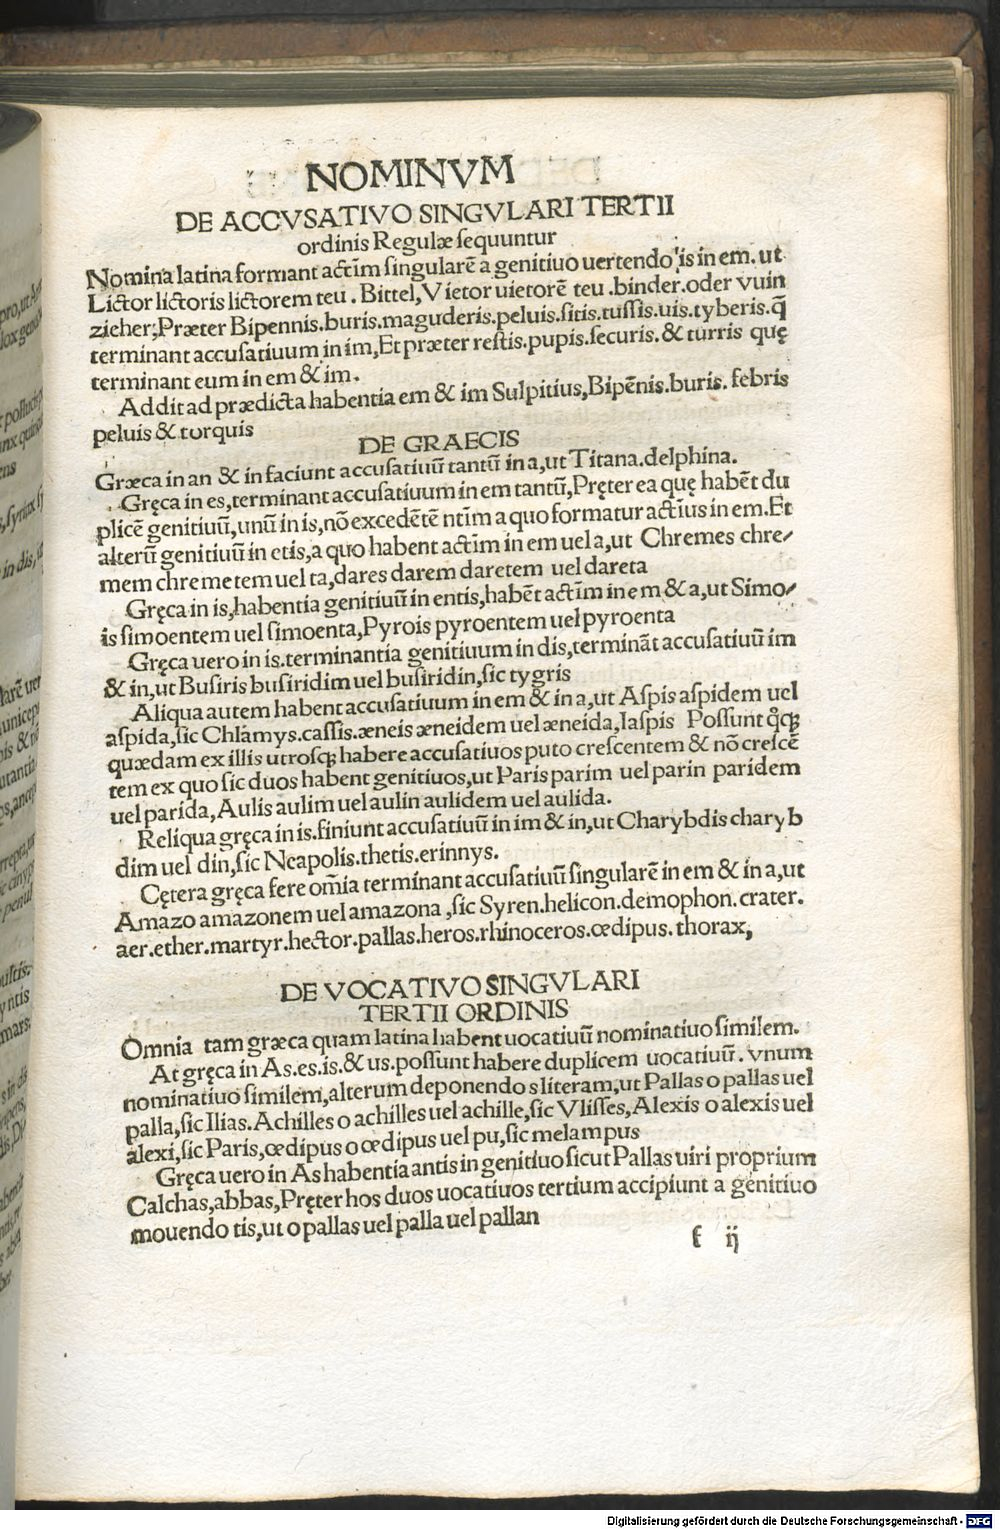 NOMINVM
DE ACCVSATIVO SINGVLARI TERTII
ordinis Regulæ sequuntur
Nomina latina formant actīm singularē a genitiuo uertendo is in em. ut
Lictor lictoris lictorem teu. Bittel, Vietor uietorē teu. binder. oder vuin
zieher; Præter Bipennis. buris. maguderis. peluis. sitis. tussis. uis. tyberis. q̄
terminant accusatiuum in im, Et præter restis. pupis. securis. & turris quę
terminant eum in em & im.
Addit ad prædicta habentia em & im Sulpitius, Bipēnis. buris. febris
peluis & torquis
DE GRAECIS
Græca in an & in faciunt accusatiuū tantū in a, ut Titana. delphina.
Gręca in es, terminant accusatiuum in em tantū, Pręter ea quę habēt du
plicē genitiuū, unū in is, nō excedētē ntīm a quo formatur actīus in em. Et
alterū genitiuū in etis, a quo habent actīm in em uel a, ut Chremes chre⸗
mem chremetem uel ta, dares darem daretem uel dareta
Gręca in is, habentia genitiuū in entis, habēt actīm in em & a, ut Simo⸗
is simoentem uel simoenta, Pyrois pyroentem uel pyroenta
Gręca uero in is. terminantia genitiuum in dis, termināt accusatiuū im
& in, ut Busiris busiridim uel busiridin, sic tygris
Aliqua autem habent accusatiuum in em & in a, ut Aspis aspidem uel
aspida, sic Chlamys. cassis. æneis æneidem uel æneida, Iaspis Possunt q̊qꝫ
quædam ex illis utrosqꝫ habere accusatiuos puto crescentem & nō crescē
tem ex quo sic duos habent genitiuos, ut Paris parim uel parin paridem
uel parida, Aulis aulim uel aulin aulidem uel aulida.
Reliqua gręca in is. finiunt accusatiuū in im & in, ut Charybdis charyb
dim uel din, sic Neapolis. thetis. erinnys.
Cętera gręca fere om̄ia terminant accusatiuū singularē in em & in a, ut
Amazo amazonem uel amazona, sic Syren. helicon. demophon. crater.
aer. ether. martyr. hector. pallas. heros. rhinoceros. œdipus. thorax,
DE VOCATIVO SINGVLARI
TERTII ORDINIS
Omnia tam græca quam latina habent uocatiuū nominatiuo similem.
At gręca in As. es. is. & us. possunt habere duplicem uocatiuū. vnum
nominatiuo similem, alterum deponendo s literam, ut Pallas o pallas uel
palla, sic Ilias. Achilles o achilles uel achille, sic Vlisses, Alexis o alexis uel
alexi, sic Paris, œdipus o œdipus uel pu, sic melampus
Gręca uero in As habentia antis in genitiuo sicut Pallas uiri proprium
Calchas, abbas, Pręter hos duos uocatiuos tertium accipiunt a genitiuo
mouendo tis, ut o pallas uel palla uel pallan
f ij
Digitalisierung gefördert durch die Deutsche Forschungsgemeinschaft - DFG